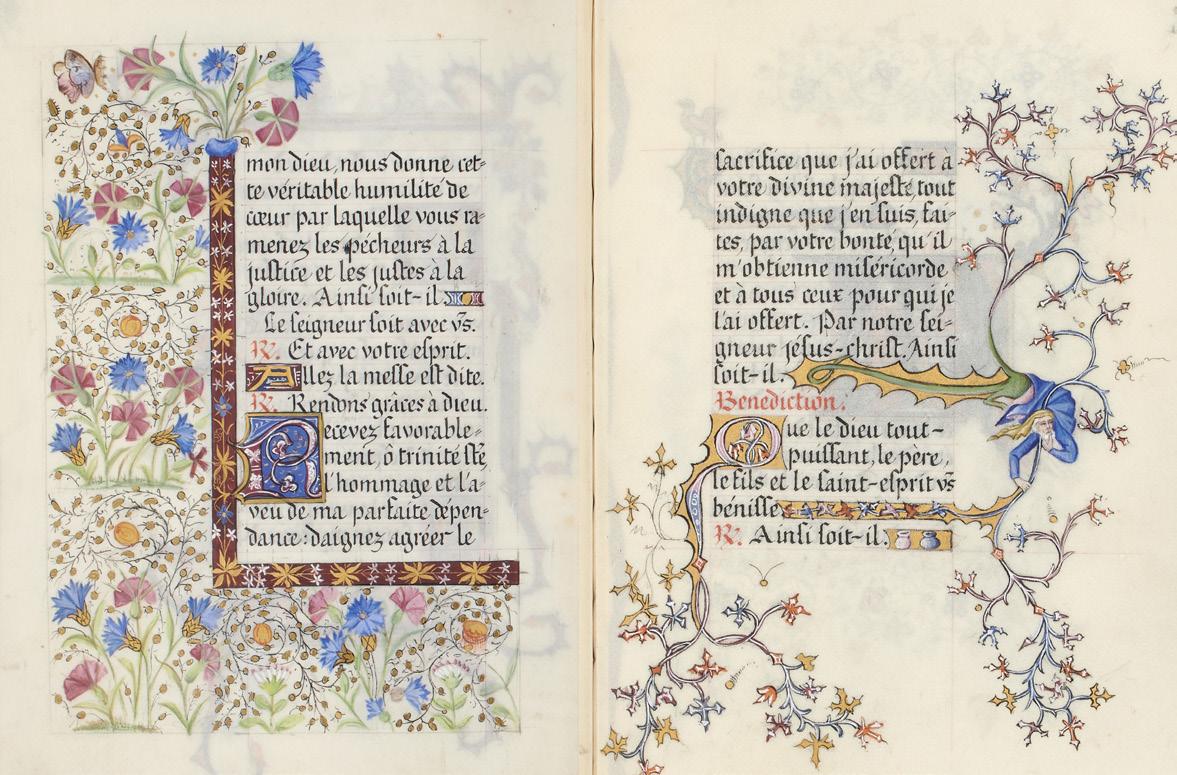 mon dieu, nous donne cet-
te véritable humilité de
cœur par laquelle vous ra-
menez les pécheurs à la
justice et les justes à la
gloire. Ainsi soit-il.
Le seigneur soit avec vs.
R. Et avec votre esprit.
Allez la messe est dite.
R. Rendons grâces à dieu.
Recevez favorable-
ment, ô trinité ste
l'hommage et l'a-
veu de ma parfaite dépen-
dance: daignez agréer le
sacrifice que j'ai offert à
votre divine majesté, tout
indigne que j'en suis, fai-
tes, par votre bonté, qu'il
m'obtienne miséricorde
et à tous ceux pour qui je
l'ai offert. Par notre sei-
gneur jésus-christ. Ainsi
soit-il.
Benediction.
Que le dieu tout-
puissant, le père,
le fils et le saint-esprit vs
bénisse
R. Ainsi soit-il.